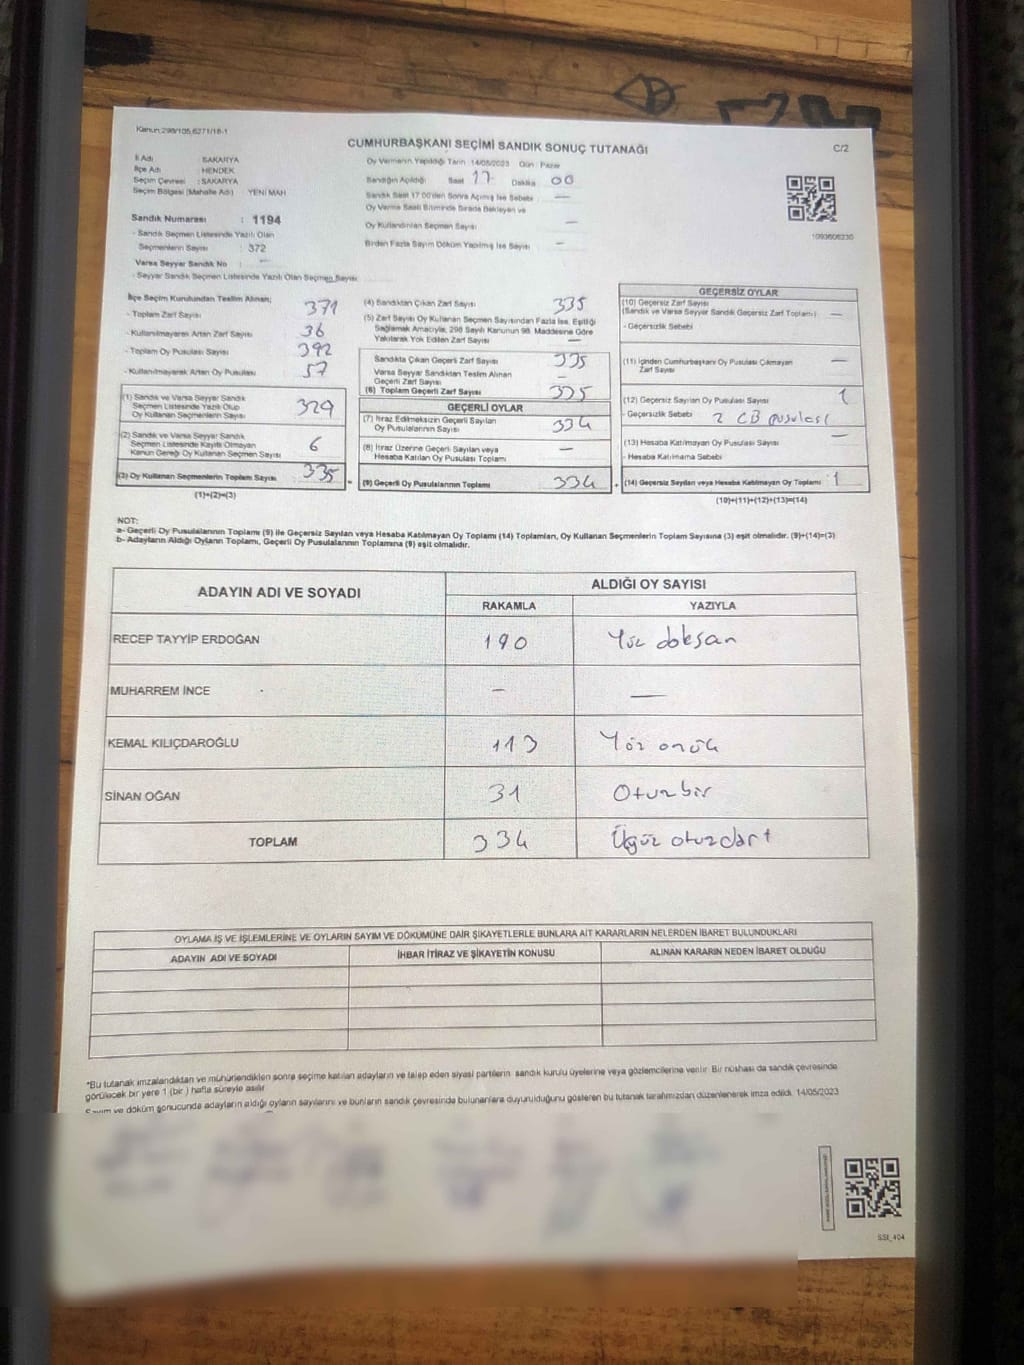 Kanun:298/105,6271/16-1
CUMHURBAŞKANI SEÇİMİ SANDIK SONUÇ TUTANAĞI
C/2
İl Adı : SAKARYA
İlçe Adı : HENDEK
Seçim Çevresi : SAKARYA
Seçim Bölgesi (Mahalle Adı) YENİ MAH
Sandık Numarası : 1194
- Sandık Seçmen Listesinde Yazılı Olan
Seçmenlerin Sayısı : 372
Varsa Seyyar Sandık No : —
- Seyyar Sandık Seçmen Listesinde Yazılı Olan Seçmen Sayısı:
Oy Vermenin Yapıldığı Tarih 14/05/2023 Gün : Pazar
Sandığın Açıldığı Saat 17 Dakika 00
Sandık Saat 17.00'den Sonra Açılmış İse Sebebi —
Oy Verme Saati Bitiminde Sırada Bekleyen ve
Oy Kullandırılan Seçmen Sayısı —
Birden Fazla Sayım Döküm Yapılmış İse Sayısı —
1093606230
İlçe Seçim Kurulundan Teslim Alınan;
- Toplam Zarf Sayısı 371
- Kullanılmayarak Artan Zarf Sayısı 36
- Toplam Oy Pusulası Sayısı 392
- Kullanılmayarak Artan Oy Pusulası 57
(1) Sandık ve Varsa Seyyar Sandık
Seçmen Listesinde Yazılı Olup
Oy Kullanan Seçmenlerin Sayısı 329
(2) Sandık ve Varsa Seyyar Sandık
Seçmen Listesinde Kayıtlı Olmayan
Kanun Gereği Oy Kullanan Seçmen Sayısı 6
(3) Oy Kullanan Seçmenlerin Toplam Sayısı 335
(1)+(2)=(3)
(4) Sandıktan Çıkan Zarf Sayısı 335
(5) Zarf Sayısı Oy Kullanan Seçmen Sayısından Fazla İse, Eşitliği
Sağlamak Amacıyla, 298 Sayılı Kanunun 98. Maddesine Göre
Yakılarak Yok Edilen Zarf Sayısı —
Sandıkta Çıkan Geçerli Zarf Sayısı 335
Varsa Seyyar Sandıktan Teslim Alınan
Geçerli Zarf Sayısı —
(6) Toplam Geçerli Zarf Sayısı 335
GEÇERLİ OYLAR
(7) İtiraz Edilmeksizin Geçerli Sayılan
Oy Pusulalarının Sayısı 334
(8) İtiraz Üzerine Geçerli Sayılan veya
Hesaba Katılan Oy Pusulası Toplamı —
(9) Geçerli Oy Pusulalarının Toplamı 334
GEÇERSİZ OYLAR
(10) Geçersiz Zarf Sayısı
(Sandık ve Varsa Seyyar Sandık Geçersiz Zarf Toplamı) —
- Geçersizlik Sebebi
(11) İçinden Cumhurbaşkanı Oy Pusulası Çıkmayan
Zarf Sayısı —
(12) Geçersiz Sayılan Oy Pusulası Sayısı 1
- Geçersizlik Sebebi 2 CB pusulası
(13) Hesaba Katılmayan Oy Pusulası Sayısı —
- Hesaba Katılmama Sebebi
(14) Geçersiz Sayılan veya Hesaba Katılmayan Oy Toplamı : 1
(10)+(11)+(12)+(13)=(14)
NOT:
a- Geçerli Oy Pusulalarının Toplamı (9) ile Geçersiz Sayılan veya Hesaba Katılmayan Oy Toplamı (14) Toplamları, Oy Kullanan Seçmenlerin Toplam Sayısına (3) eşit olmalıdır. (9)+(14)=(3)
b- Adayların Aldığı Oyların Toplamı, Geçerli Oy Pusulalarının Toplamına (9) eşit olmalıdır.
ADAYIN ADI VE SOYADI ALDIĞI OY SAYISI
RAKAMLA YAZIYLA
RECEP TAYYİP ERDOĞAN 190 Yüz doksan
MUHARREM İNCE — —
KEMAL KILIÇDAROĞLU 113 Yüz onüç
SİNAN OĞAN 31 Otuzbir
TOPLAM 334 Üçyüz otuzdört
OYLAMA İŞ VE İŞLEMLERİNE VE OYLARIN SAYIM VE DÖKÜMÜNE DAİR ŞİKAYETLERLE BUNLARA AİT KARARLARIN NELERDEN İBARET BULUNDUKLARI
ADAYIN ADI VE SOYADI İHBAR İTİRAZ VE ŞİKAYETİN KONUSU ALINAN KARARIN NEDEN İBARET OLDUĞU
*Bu tutanak imzalandıktan ve mühürlendikten sonra seçime katılan adayların ve talep eden siyasi partilerin sandık kurulu üyelerine veya gözlemcilerine verilir. Bir nüshası da sandık çevresinde
görülecek bir yere 1 (bir) hafta süreyle asılır.
Sayım ve döküm sonucunda adayların aldığı oyların sayılarını ve bunların sandık çevresinde bulunanlara duyurulduğunu gösteren bu tutanak tarafımızdan düzenlenerek imza edildi. 14/05/2023
SSI_404